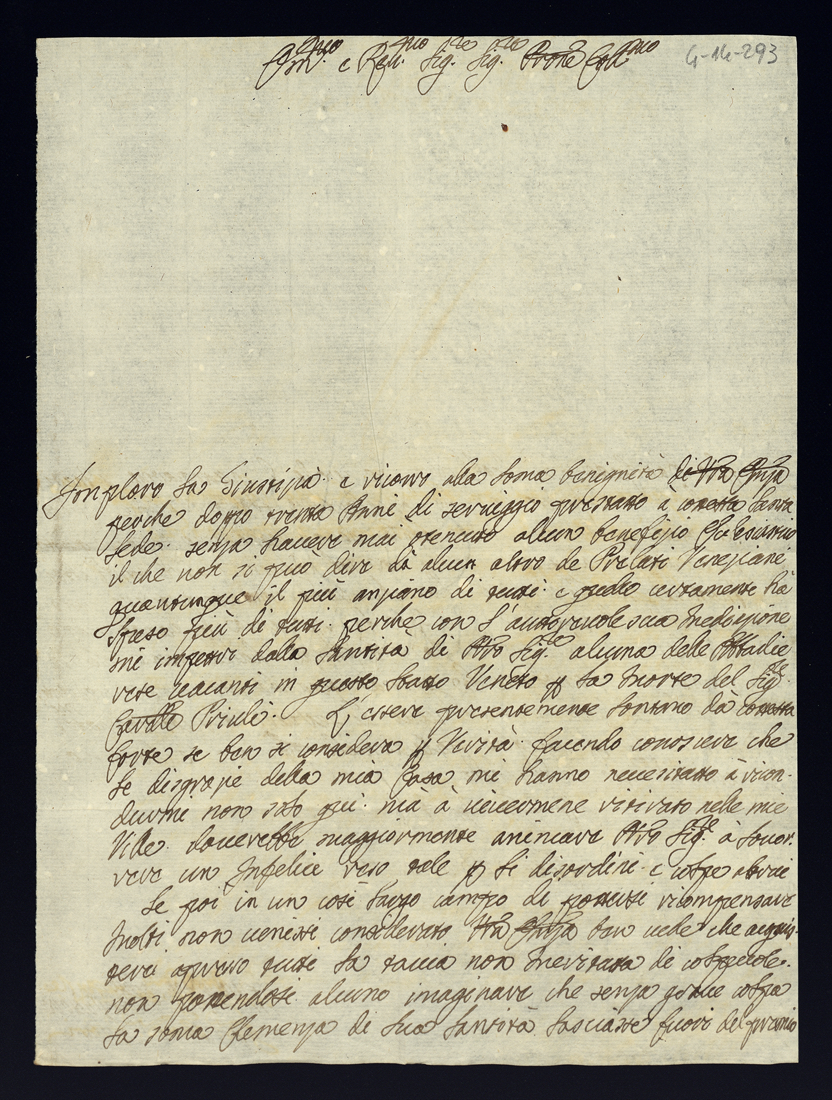 Em.mo e Rev.mo Sig.re Sig.re Prone Coll.mo
G-14-293
Implоro la Giustizia e ricorro alla soma benignità di Vra Emza
perche doppo trenta Anni di serviggio prestato a cotesta Santa
Sede senza havere mai ottenuto alcun benefizio Ecclesiastico
il che non si puo dire dà alcun altro de Prelati Veneziani
quantunque il più anziano di tutti e quello certamente hà
speso più di tutti perche con l'autorevole sua Mediazione
mi impetri dalla Santità di Nro Sig.re alcuna delle Abbadie
rese vacanti in questo Stato Veneto p la Morte del Sig.re
Cavalle Priuli. L'essere presentemente lontano dà cotesta
Corte se ben si considera p Verità facendo conoscere che
le disgrazie della mia Casa mi hanno necessitato à ricon-
durmi non solo qui mà à vivermene ritirato nelle mie
Ville doverebbe maggiormente animare Nro Sig.re à sovve-
nire un Infelice reso tale p li disordini e colpe altrui
Se poi in un così largo campo di potersi ricompensare
Molti non venissi considerato Vra Emza ben vede che acquis-
terei apresso tutti la tacca non meritata di colpevole.
non potendosi alcuno imaginare che senza grave colpa
la soma Clemenza di Sua Santità lasciasse fuori del premio